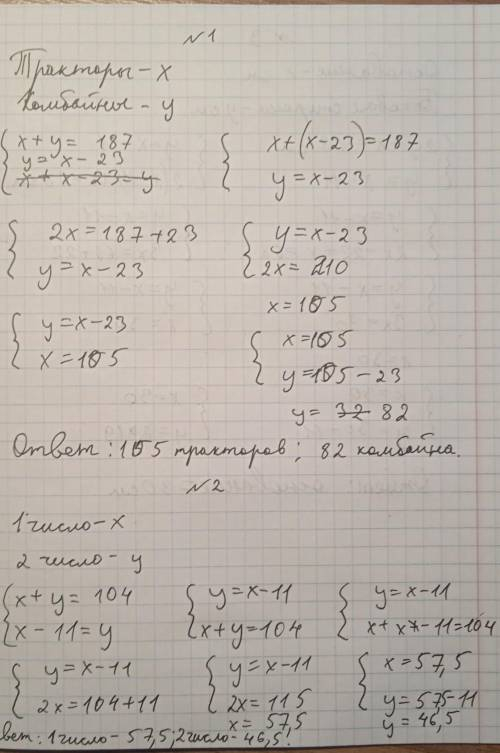 №1
Тракторы - x
Комбайны - y
{ x + y = 187
y = x - 23
x + x - 23 = y
{ x + (x - 23) = 187
y = x - 23
{ 2x = 187 + 23
y = x - 23
{ y = x - 23
2x = 210
x = 105
{ y = x - 23
x = 105
{ x = 105
y = 105 - 23
y = 32 82
Ответ: 105 тракторов; 82 комбайна.
№2
1 число - x
2 число - y
{ x + y = 104
x - 11 = y
{ y = x - 11
x + y = 104
{ y = x - 11
x + x - 11 = 104
{ y = x - 11
2x = 104 + 11
{ y = x - 11
2x = 115
x = 57,5
{ x = 57,5
y = 57,5 - 11
y = 46,5
вет: 1 число - 57,5; 2 число - 46,5.